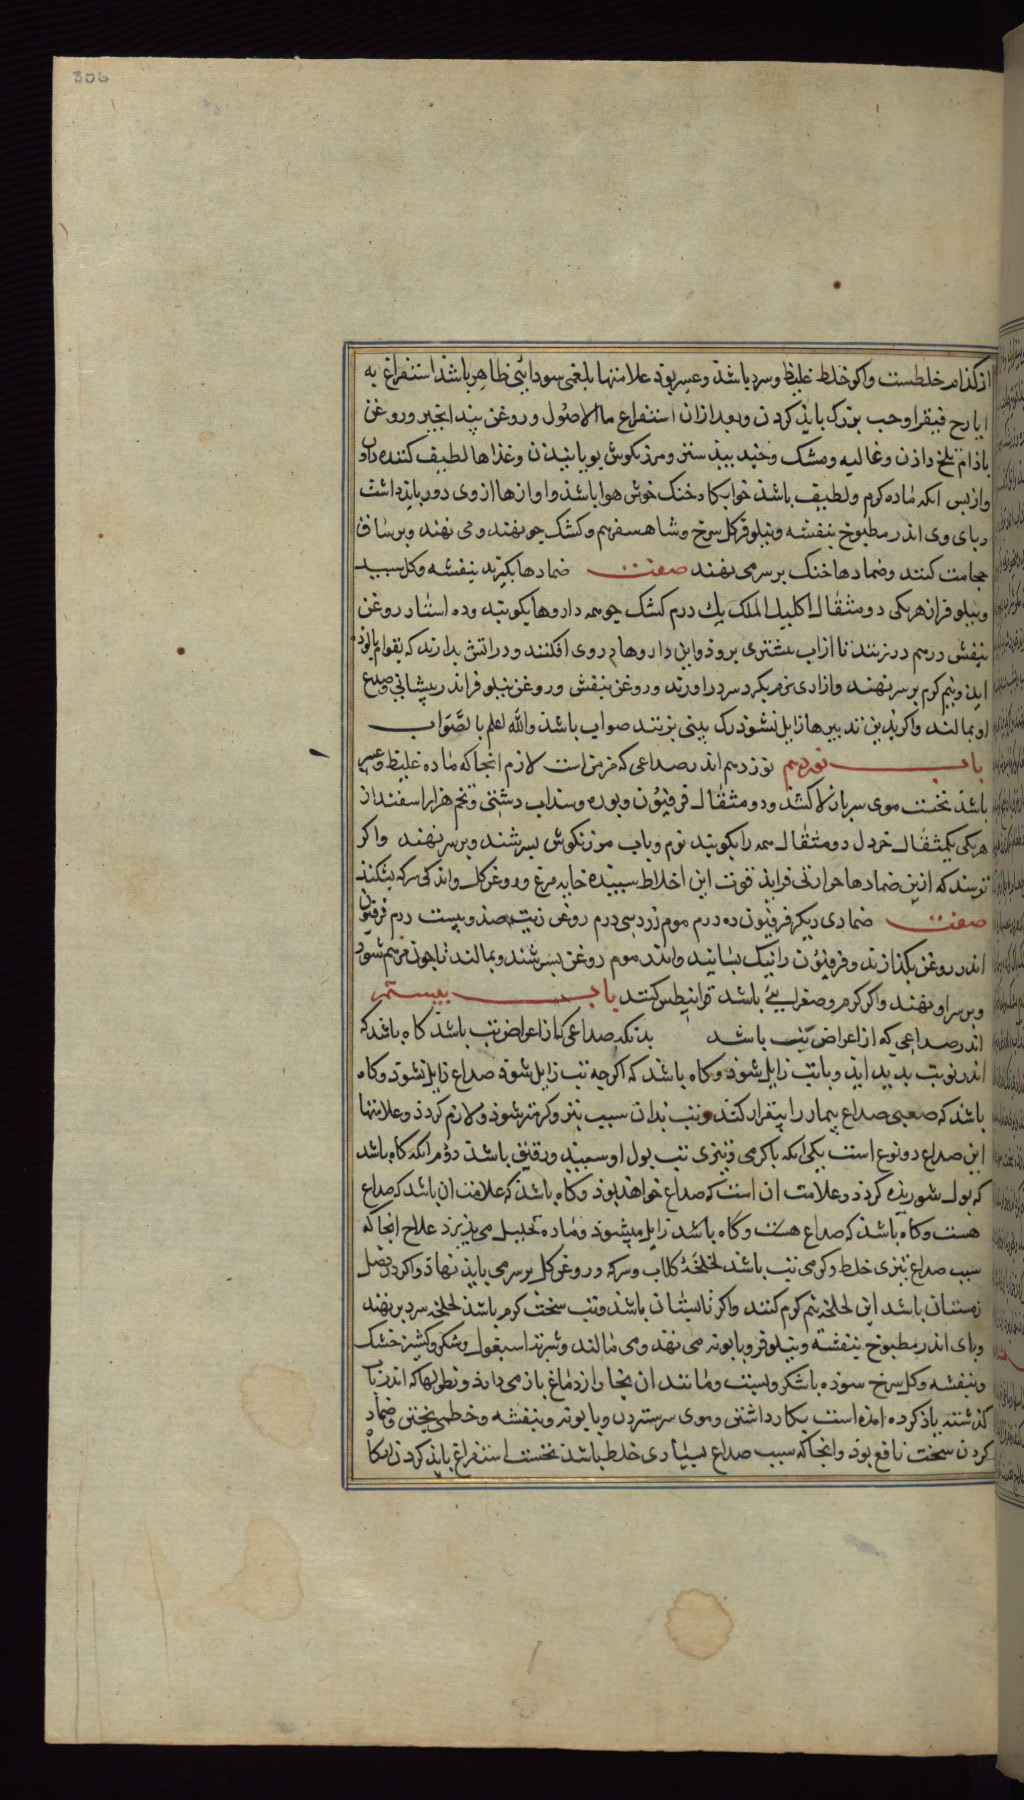 306
از کدام خلطست واکر خلط غلیظ وسرد باشد وعسر بود علامتها بلغمی سودائی ظاهر باشد استفراغ به
ایارج فیقرا وحب بزرک باید کردن وبعد ازان استفراغ ماالاصول وروغن بیدانجیر وروغن
باذام تلخ دادن وغالیه ومشک وجند بیدستر ومرزنکوش بویانیدن وغذاها لطیف کننده دادن
واز بس انکه ماده کرم ولطیف باشد خوابکاه خنک خوش هوا باشد واوازها از وی دور باید داشت
وبای وی اندر مطبوخ بنفشه ونیلوفر کل سرخ وشاهسفرهم وکشک جو نهند ومی نهند وبرساق
حجامت کنند وضمادها خنک بر سر می نهند صفت ضمادها بکیرند بنفشه وکل سبید
ونیلوفر از هریکی دو مثقال اکلیل الملک یک درم کشک جو سه داروها بکوبند وده استار روغن
بنفش درهم زنند تا از اب بشتری برود واین داروها در وی افکنند ودر اتش بدارند که بقوام
اید ونیم کرم بر سر نهند وروغن بنفش وروغن نیلوفر اندر بیشانی وصدغ
او بمالند واکر بدین تدبیرها زایل نشود رک بینی بزنند صواب باشد والله اعلم بالصواب
باب نوزدهم نوزدهم اندر صداعی که مزمن است لازم انجا که ماده غلیظ وعسر
باشد نخست موی سر باز کنند ودو مثقال فرفیون وبوره وسنداب دشتی وتخم هزار اسفند از
هریکی یکمثقال خردل دو مثقال همه را بکوبند نرم وباب مرزنکوش بسرشند وبر سر نهند واکر
ترسند که ازین ضمادها حرارتی فزاید قوت این اخلاط سبیده خایه مرغ وروغن کل واندکی سرکه بشکنند
صفت ضمادی دیکر فرفیون ده درم موم زرد سی درم روغن زیت صد وبیست درم فرفیون
اندر روغن بکذازند وفرفیون را نیک بسایند واندر موم روغن بسرشند وبمالند تا جون مرهم شود
وبر سر او نهند واکر کرم وصفرایی باشد قرانیطس کنند باب بیستم
اندر صداعی که از اعراض تب باشد بدانکه صداعی که از اعراض تب باشد کاه باشد که
اندر نوبت بدید اید وبا تب زایل شود وکاه باشد که اکرجه تب زایل شود صداع زایل نشود وکاه
باشد که صعبی صداع بیمار را بیقرار کند وتب بدان سبب تیز وکرمتر شود ولازم کردد وعلامتها
این صداع دو نوع است یکی انکه با کرمی وتیزی تب بول او سبید ورقیق باشد دوم انکه کاه باشد
که بول شوریده کردد وعلامت ان است که صداع خواهد بود وکاه باشد که علامت ان باشد که صداع
هست وکاه باشد که صداع هست وکاه باشد زایل میشود وماده تحلیل می بذیرد علاج انجا که
سبب صداع تیزی خلط وکرمی تب باشد لخلخه کلاب وسرکه وروغن کل بر سر می باید نهاد واکر فصل
زمستان باشد این لخلخه نیم کرم کنند واکر تابستان باشد وتب سخت کرم باشد لخلخه سرد بر نهند
وبای اندر مطبوخ بنفشه ونیلوفر وبابونه می نهند ومی مالند وشربت اسبغول وشکر وکشنیز خشک
وبنفشه وکل سرخ سوده با شکر وبست ومانند ان بخار از دماغ باز می دارد ونطولها که اندر باب
کذشته یاد کرده امده است بکار داشتن وموی سر ستردن وبابونه وبنفشه وخطمی بختن وضماد
کردن سخت نافع بود وانجا که سبب صداع بسیاری خلط باشد نخست استفراغ باید کردن